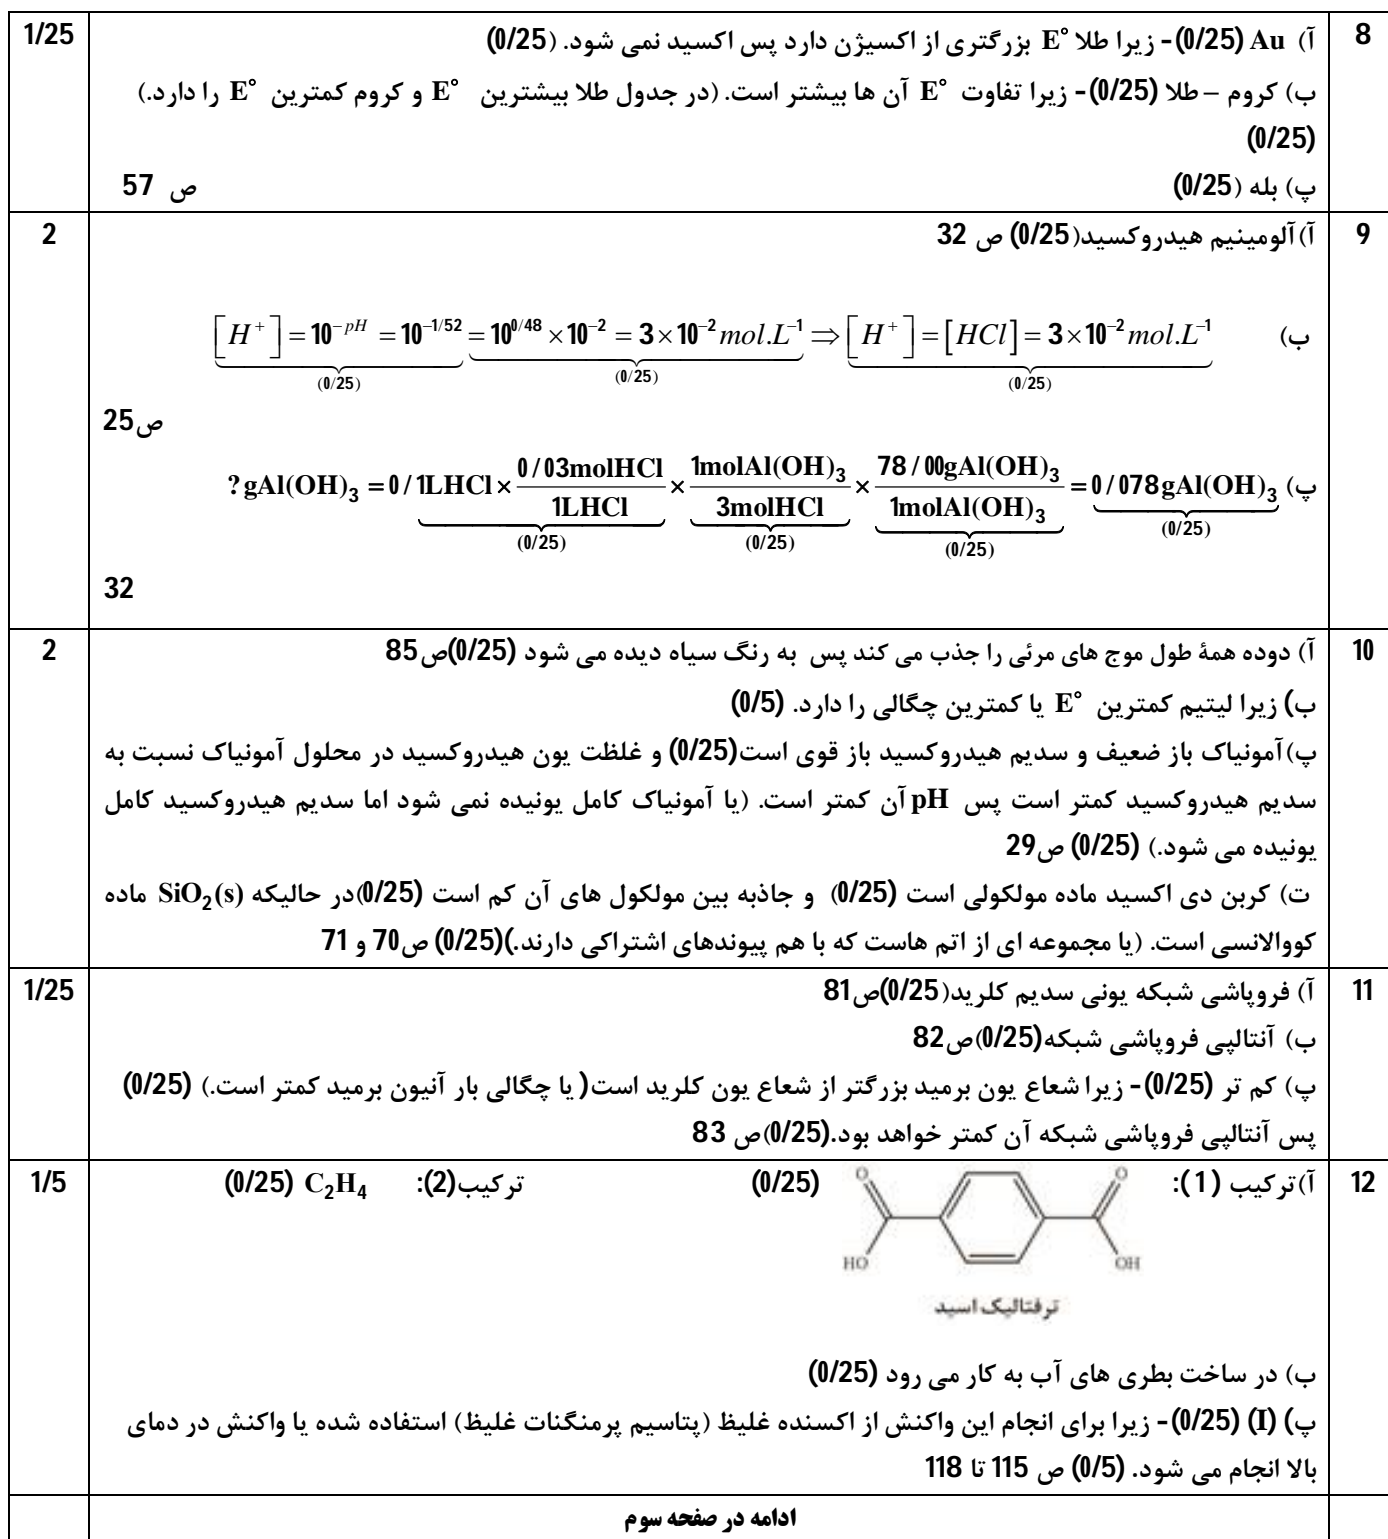 8
آ) Au (0/25)- زیرا طلا E° بزرگتری از اکسیژن دارد پس اکسید نمی شود. (0/25)
1/25
ب) کروم – طلا (0/25)- زیرا تفاوت E° آن ها بیشتر است. (در جدول طلا بیشترین E° و کروم کمترین E° را دارد.)
(0/25)
پ) بله (0/25) ص 57
9
آ)آلومینیم هیدروکسید(0/25) ص 32
2
ب) [H⁺] = 10^{-pH} = 10^{-1/52} = 10^{0/48} × 10^{-2} = 3 × 10^{-2} mol.L^{-1} ⇒ [H⁺] = [HCl] = 3 × 10^{-2} mol.L^{-1}
(0/25) (0/25) (0/25)
ص25
پ) ? gAl(OH)₃ = 0/1LHCl × 0/03molHCl/1LHCl × 1molAl(OH)₃/3molHCl × 78/00gAl(OH)₃/1molAl(OH)₃ = 0/078gAl(OH)₃
(0/25) (0/25) (0/25) (0/25)
32
10
آ) دوده همۀ طول موج های مرئی را جذب می کند پس به رنگ سیاه دیده می شود (0/25)ص85
2
ب) زیرا لیتیم کمترین E° یا کمترین چگالی را دارد. (0/5)
پ)آمونیاک باز ضعیف و سدیم هیدروکسید باز قوی است(0/25) و غلظت یون هیدروکسید در محلول آمونیاک نسبت به
سدیم هیدروکسید کمتر است پس pH آن کمتر است. (یا آمونیاک کامل یونیده نمی شود اما سدیم هیدروکسید کامل
یونیده می شود.) (0/25) ص29
ت) کربن دی اکسید ماده مولکولی است (0/25) و جاذبه بین مولکول های آن کم است (0/25)در حالیکه SiO₂(s) ماده
کووالانسی است. (یا مجموعه ای از اتم هاست که با هم پیوندهای اشتراکی دارند.)(0/25) ص70 و 71
11
آ) فروپاشی شبکه یونی سدیم کلرید(0/25)ص81
1/25
ب) آنتالپی فروپاشی شبکه(0/25)ص82
پ) کم تر (0/25)- زیرا شعاع یون برمید بزرگتر از شعاع یون کلرید است( یا چگالی بار آنیون برمید کمتر است.) (0/25)
پس آنتالپی فروپاشی شبکه آن کمتر خواهد بود.(0/25)ص 83
12
آ)ترکیب (1): (0/25) ترکیب(2): C₂H₄ (0/25)
1/5
O O
HO OH
ترفتالیک اسید
ب) در ساخت بطری های آب به کار می رود (0/25)
پ) (I) (0/25)- زیرا برای انجام این واکنش از اکسنده غلیظ (پتاسیم پرمنگنات غلیظ) استفاده شده یا واکنش در دمای
بالا انجام می شود. (0/5) ص 115 تا 118
ادامه در صفحه سوم